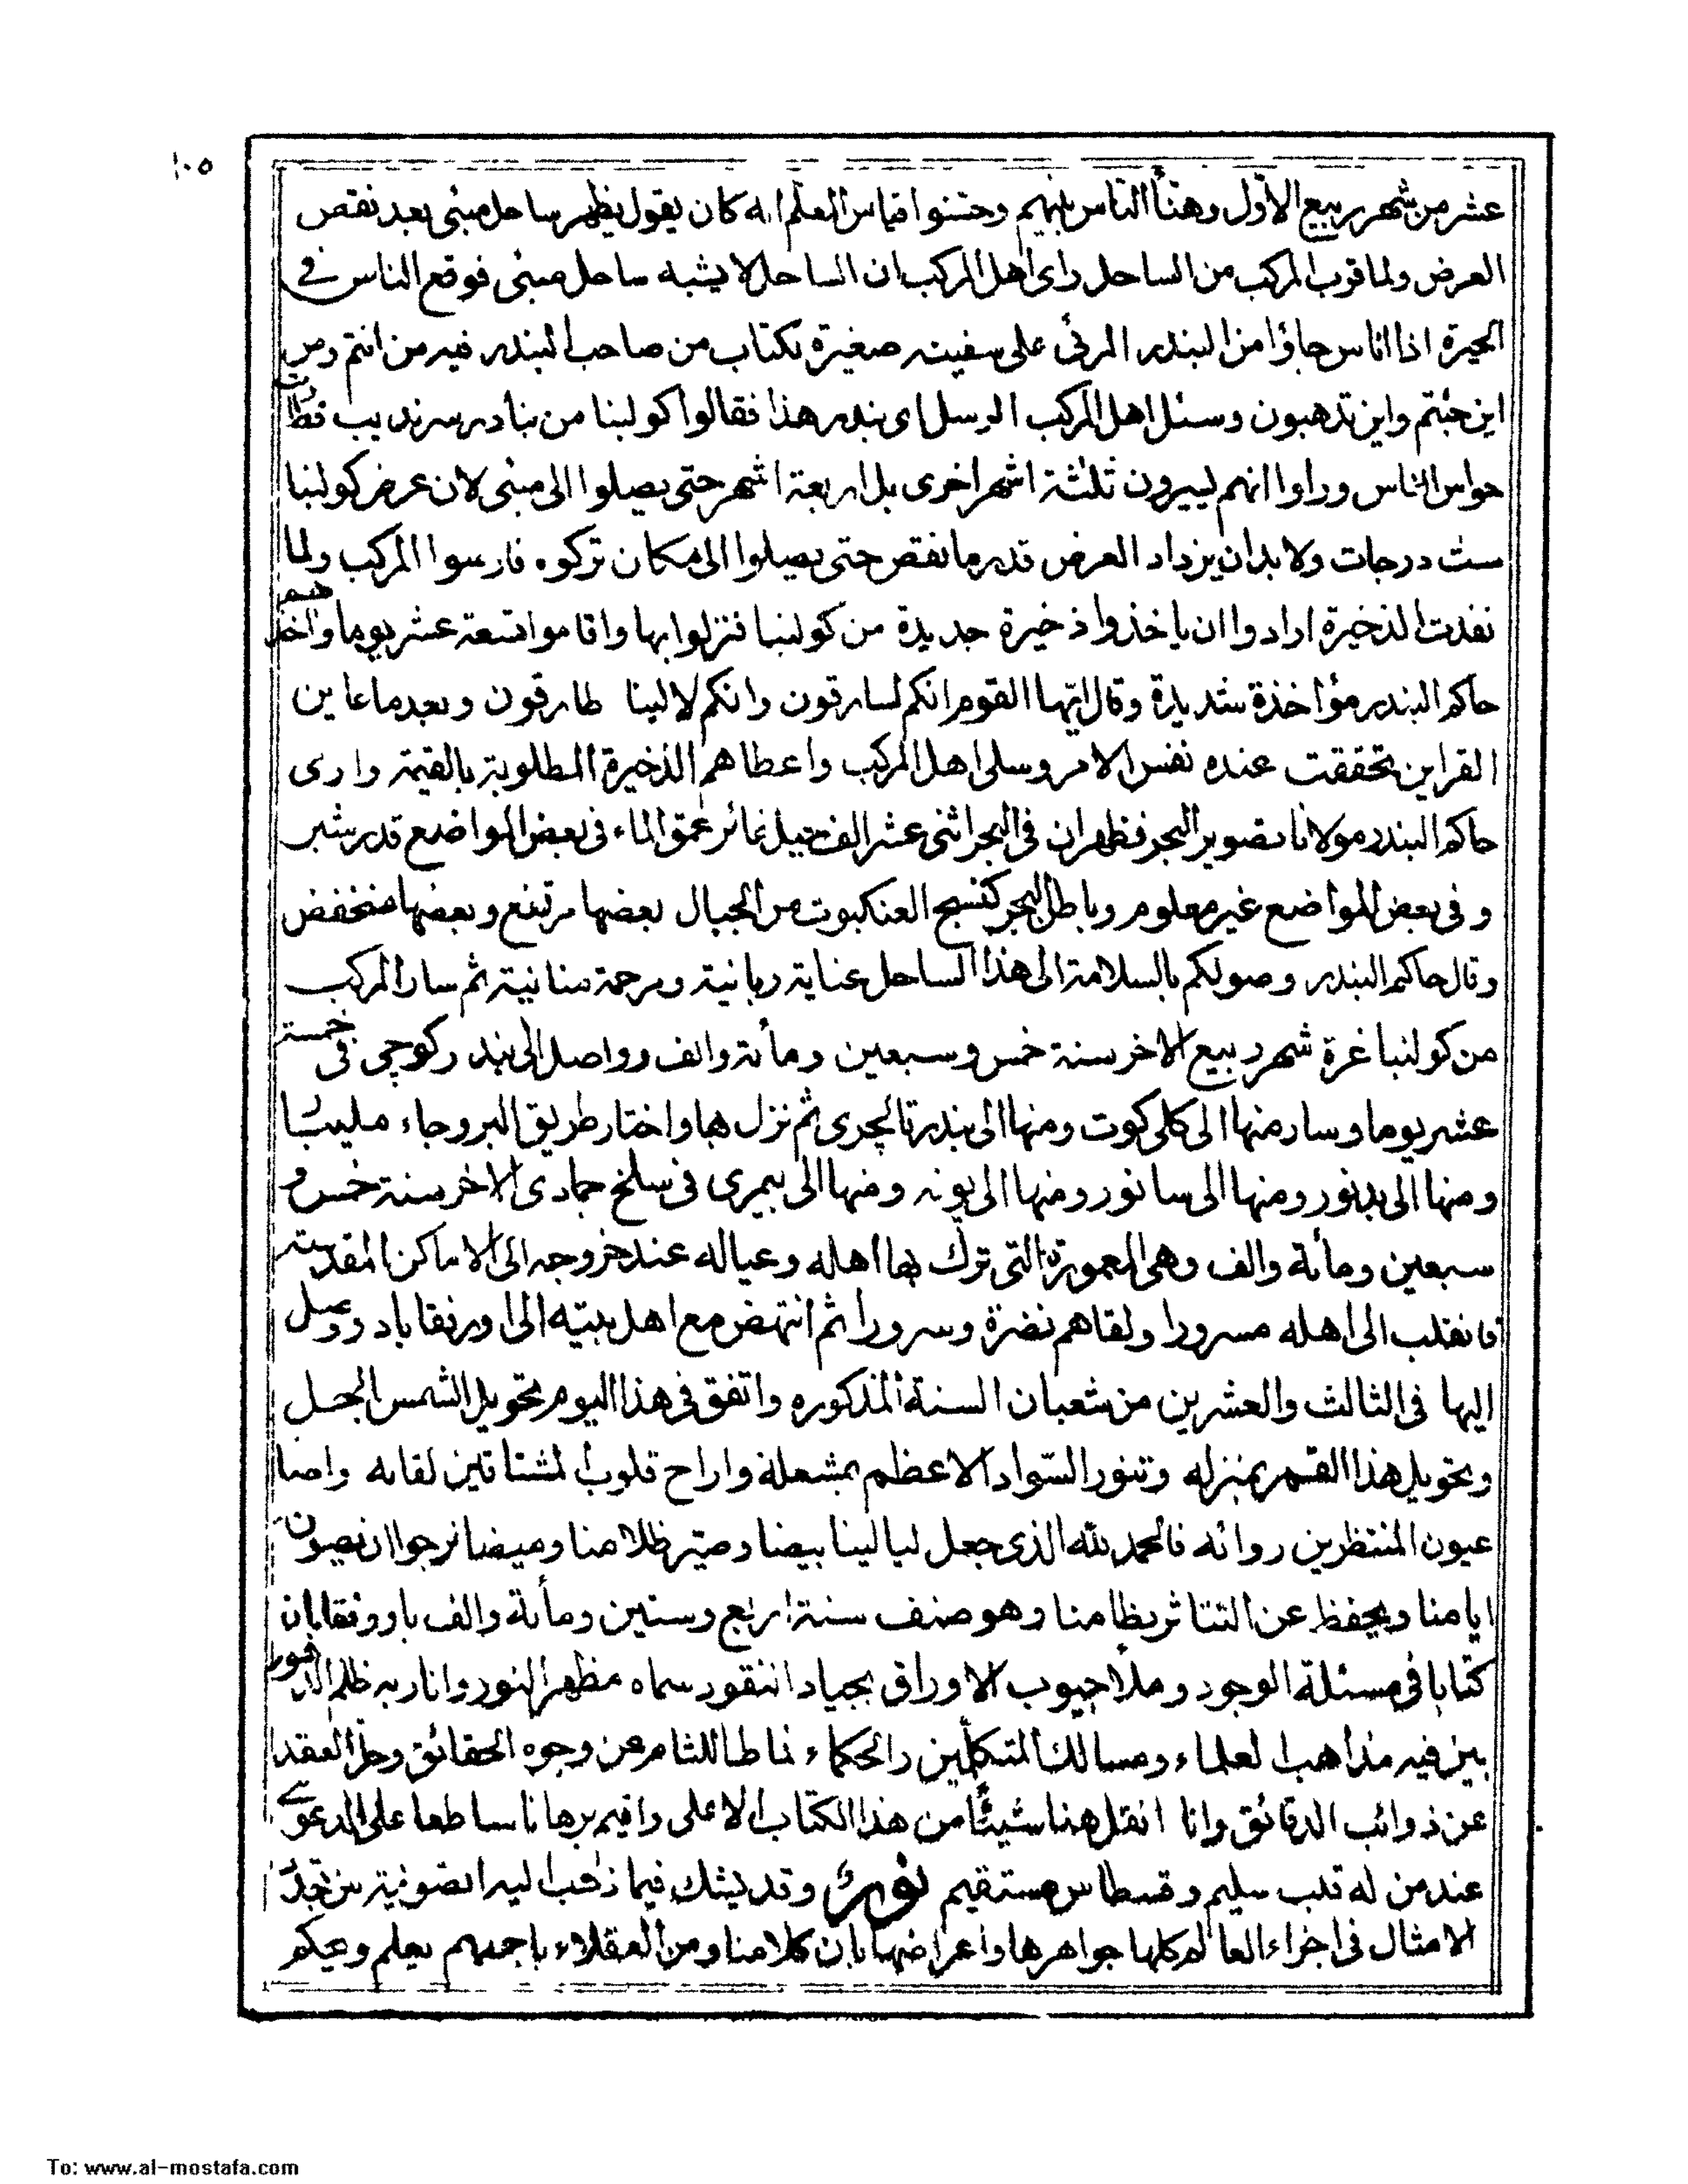 ١٠٥
عشر من شهر ربيع الاوّل وهنّأ الناس بينهم وحسّنوا قياس المعلّم انه كان يقول يظهر ساحل منبئى بعد نقص
العرض ولما قرب المركب من الساحل راى اهل المركب ان الساحل لا يشبه ساحل منبئى فوقع الناس فى
الحيرة اذا اناس جاؤا من البندر المرئى على سفينه صغيرة بكتاب من صاحب البندر فيه من انتم ومن
اين جئتم واين تذهبون وسئل اهل المركب الرسل اى بندر هذا فقالوا كولنبا من بنادر سرنديب فطارت
حواس الناس وراوا انهم يسيرون ثلثة اشهر اخرى بل اربعة اشهر حتى يصلوا الى منبئى لان عرض كولنبا
ست درجات ولا بد ان يزداد العرض قدر ما نقص حتى يصلوا الى مكان تركوه فارسوا المركب ولما
نفذت الذخيرة ارادوا ان ياخذوا ذخيرة جديدة من كولنبا فنزلوا بها واقاموا تسعة عشر يوما واخذهم
حاكم البندر مؤاخذة شديدة وقال ايّها القوم انكم لسارقون وانكم لالينا طارقون وبعد ما عاين
القراين تحققت عنده نفس الامر وسلى اهل المركب واعطاهم الذخيرة المطلوبة بالقيمة وارى
حاكم البندر مولانا تصوير البحر فظهر ان فى البحر اثنى عشر الف جبل غائر عمق الماء فى بعض المواضع قدر شبر
وفى بعض المواضع غير معلوم وباطن البحر كنسج العنكبوت من الجبال بعضها مرتفع وبعضها منخفض
وقال حاكم البندر وصولكم بالسلامة الى هذا الساحل عناية ربانية ومرحمة منانية ثم سار المركب
من كولنبا غرة شهر ربيع الاخر سنة خمس وسبعين ومأنة والف وواصل الى بندر كوچى فى خمسة
عشر يوما وسار منها الى كلى كوت ومنها الى بندر تالچرى ثم نزل بها واختار طريق البر وجاء مليبا
ومنها الى بدنور ومنها الى سانور ومنها الى پونه ومنها الى بيمرى فى سلخ جمادى الاخر سنة خمس و
سبعين ومأنة والف وهى المعمورة التى ترك بها اهله وعياله عند خروجه الى الاماكن المقدسة
فانقلب الى اهله مسرورا ولقاهم نضرة وسرورا ثم انتهض مع اهل بيته الى اورنقاباد ووصل
اليها فى الثالث والعشرين من شعبان السنة المذكوره واتفق فى هذا اليوم تحويل الشمس الحمل
وتحويل هذا القمر بمنزله وتنور السّواد الاعظم بمشعلة واراح قلوب المشتاقين لقائه واضا
عيون المنتظرين روائه فالحمد لله الذى جعل ليالينا بيضا وصيّر ظلامنا وميضا نرجوا ان يصون
ايامنا ويحفظ عن التناثر نظامنا وهو صنف سنة اربع وستين ومأنة والف باورنقاباد
كتابا فى مسئلة الوجود وملأ جيوب الاوراق بجياد النقود سماه مظهر النور وانار به ظلم الديجور
بين فيه مذاهب العلماء ومسالك المتكلّمين والحكماء نماط اللثام عن وجوه الحقائق وحل العقد
عن ذوائب الدقائق وانا انقل هنا شيئًا من هذا الكتاب الاعلى واقيم برهانا ساطعا على الدعوى
عند من له قلب سليم وقسطاس مستقيم نور وقد يشك فيما ذهب اليه الصوفية من تجدّد
الامثال فى اجزاء العالم كلها جواهرها واعراضها بان كلامنا ومن العقلاء باجمعهم يعلم ويحكم
To: www.al-mostafa.com